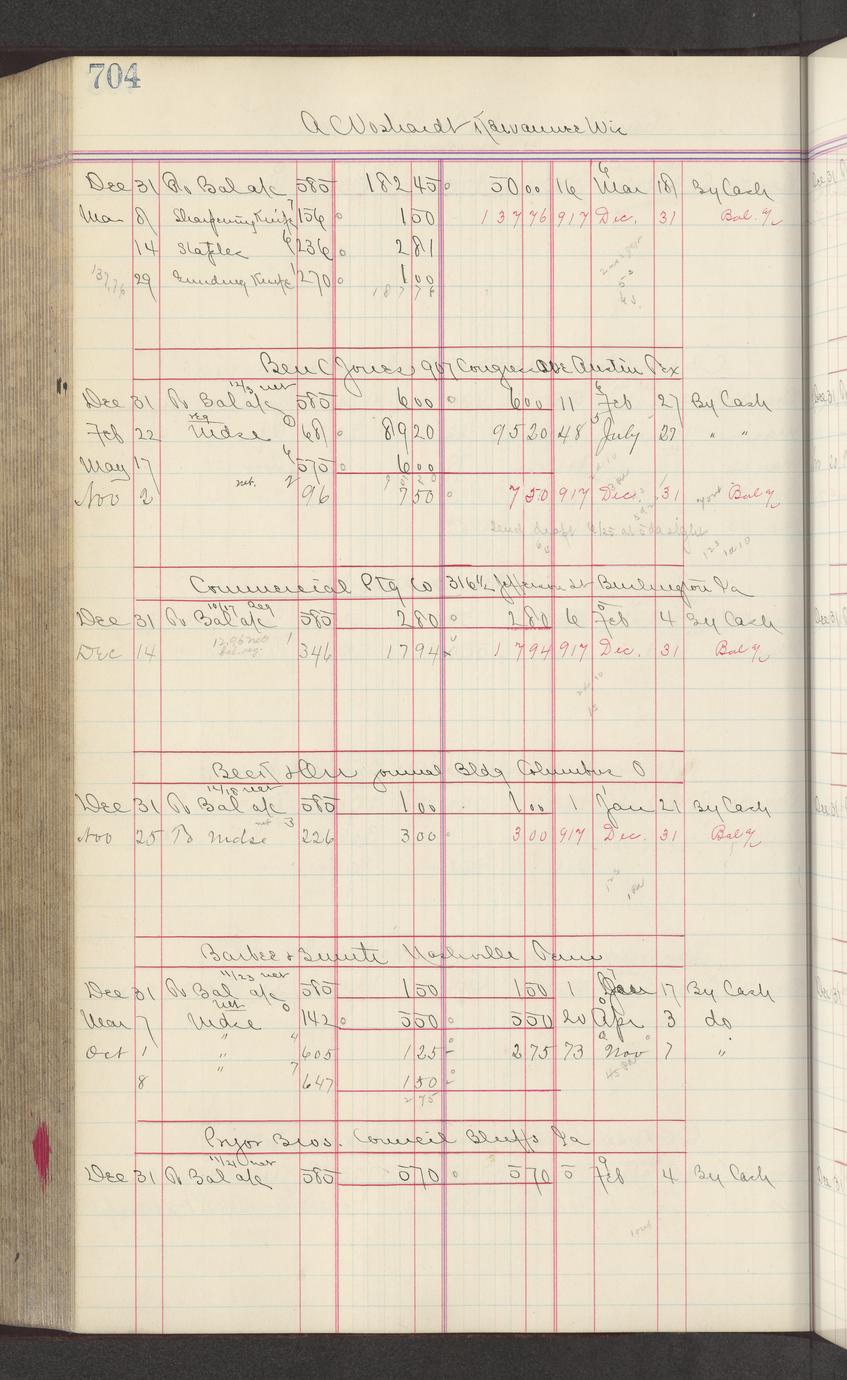 704
A C Voshardt Kewaunee Wis
Dec 31 To Bal a/c 585 182 45 50 00 16 Mar 18 By Cash
Mar 8 Sharpening Knife 7 156 1 50 137 76 917 Dec. 31 Bal. a/c
14 Staples 6 236 2 81
137.76 29 Grinding Knife 1 270 1 00
187 76
Ben C Jones 907 Congress Ave Austin Tex
12/3 net
Dec 31 To Bal a/c 585 6 00 6 00 11 Feb 27 By Cash
Feb 22 Mdse 0 68 89 20 95 20 48 July 27 " "
May 17 6 575 6 00
Nov 2 net. 2 96 7 50 7 50 917 Dec. 31 Bal a/c
Send draft 6/25 at 5 da sight
Commercial Ptg Co 316 1/2 Jefferson St Burlington Ia
Dec 31 To Bal a/c 585 2 80 2 80 6 Feb 4 By Cash
Dec 14 12.96 net 1 346 17 94 17 94 917 Dec. 31 Bal a/c
Beck & Orr Journal Bldg Columbus O
12/18 net
Dec 31 To Bal a/c 585 1 00 1 00 1 Jan 21 By Cash
Nov 25 To Mdse net 3 226 3 00 3 00 917 Dec. 31 Bal a/c
Barbee & Smith Nashville Tenn
11/23 net
Dec 31 To Bal a/c 585 1 50 1 50 1 Jan 17 By Cash
Mar 7 Mdse net 0 142 5 50 5 50 20 Apr 3 do
Oct 1 " " 4 605 1 25 2 75 73 Nov 7 "
8 " 7 647 1 50
2 75
Pryor Bros. Council Bluffs Ia
11/21 net
Dec 31 To Bal a/c 585 5 70 5 70 5 Feb 4 By Cash